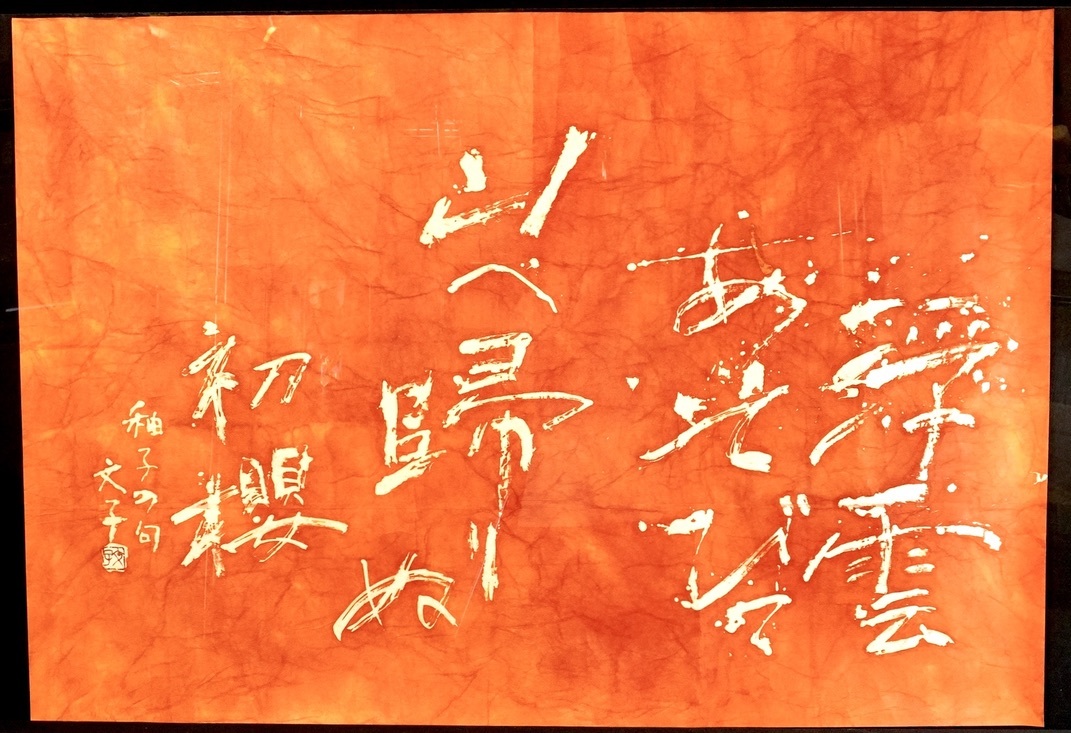 浮雲
あそびて
山へ歸りぬ
初櫻
釉子の句
文子